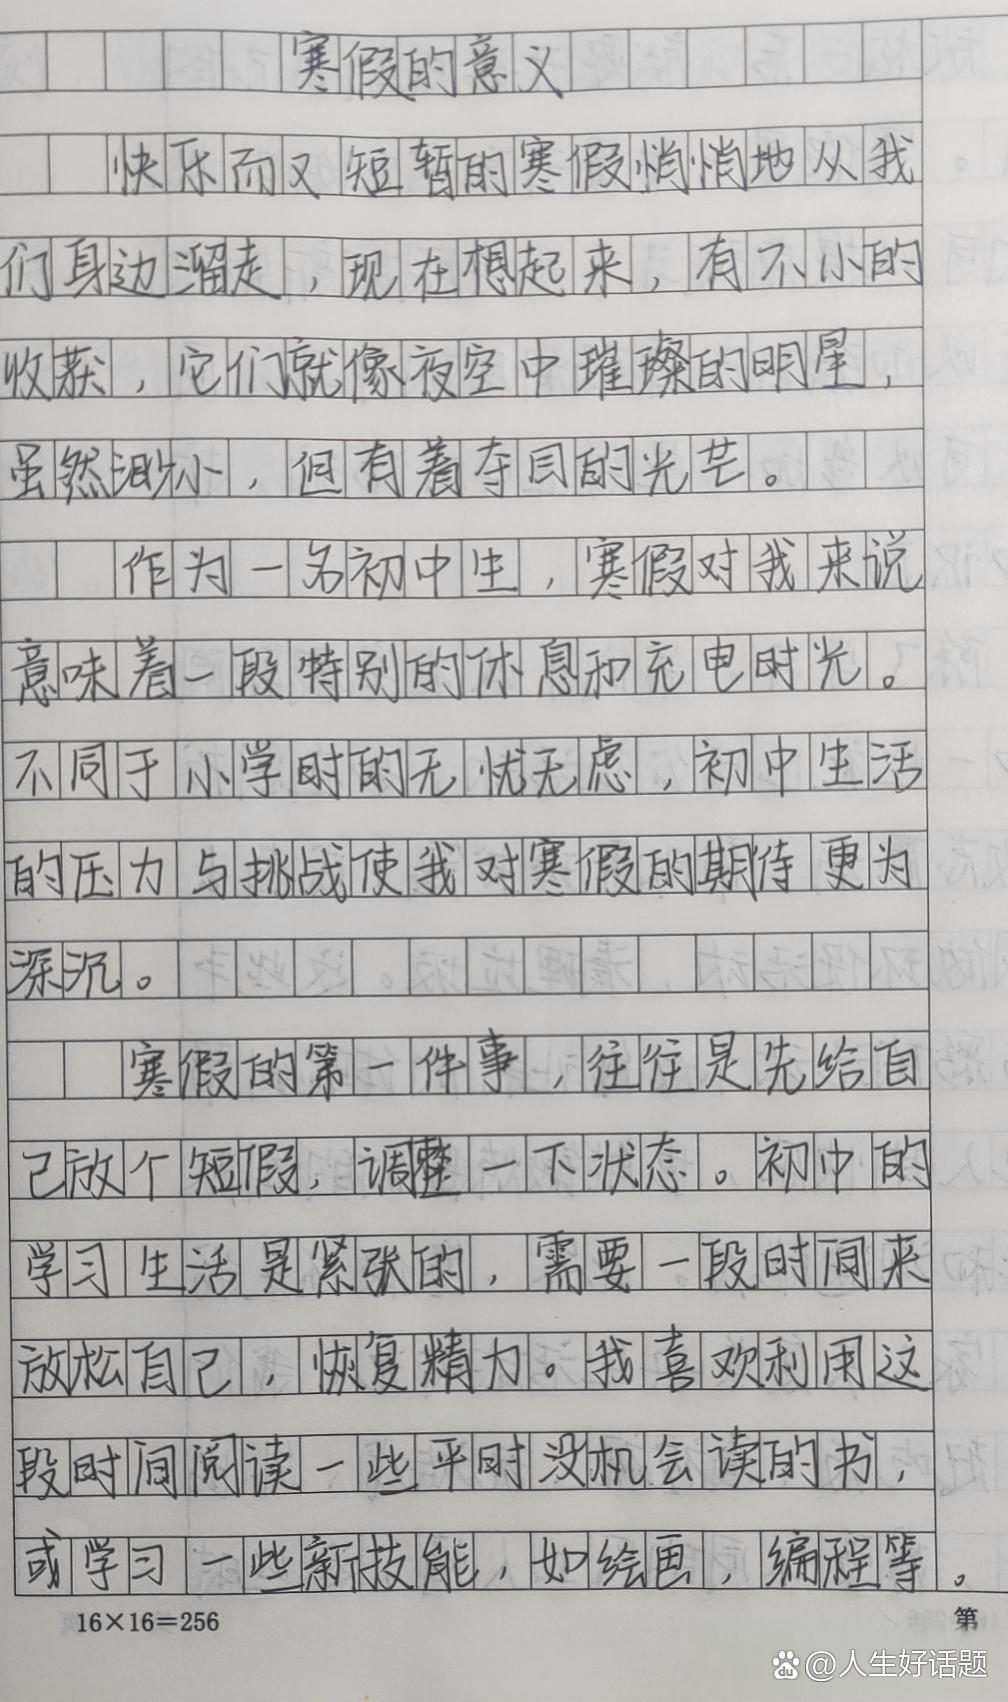 寒假的意义
快乐而又短暂的寒假悄悄地从我
们身边溜走，现在想起来，有不小的
收获，它们就像夜空中璀璨的明星，
虽然渺小，但有着夺目的光芒。
作为一名初中生，寒假对我来说
意味着一段特别的休息和充电时光。
不同于小学时的无忧无虑，初中生活
的压力与挑战使我对寒假的期待更为
深沉。
寒假的第一件事，往往是先给自
己放个短假，调整一下状态。初中的
学习生活是紧张的，需要一段时间来
放松自己，恢复精力。我喜欢利用这
段时间阅读一些平时没机会读的书，
或学习一些新技能，如绘画，编程等。
16×16=256
第
@人生好话题